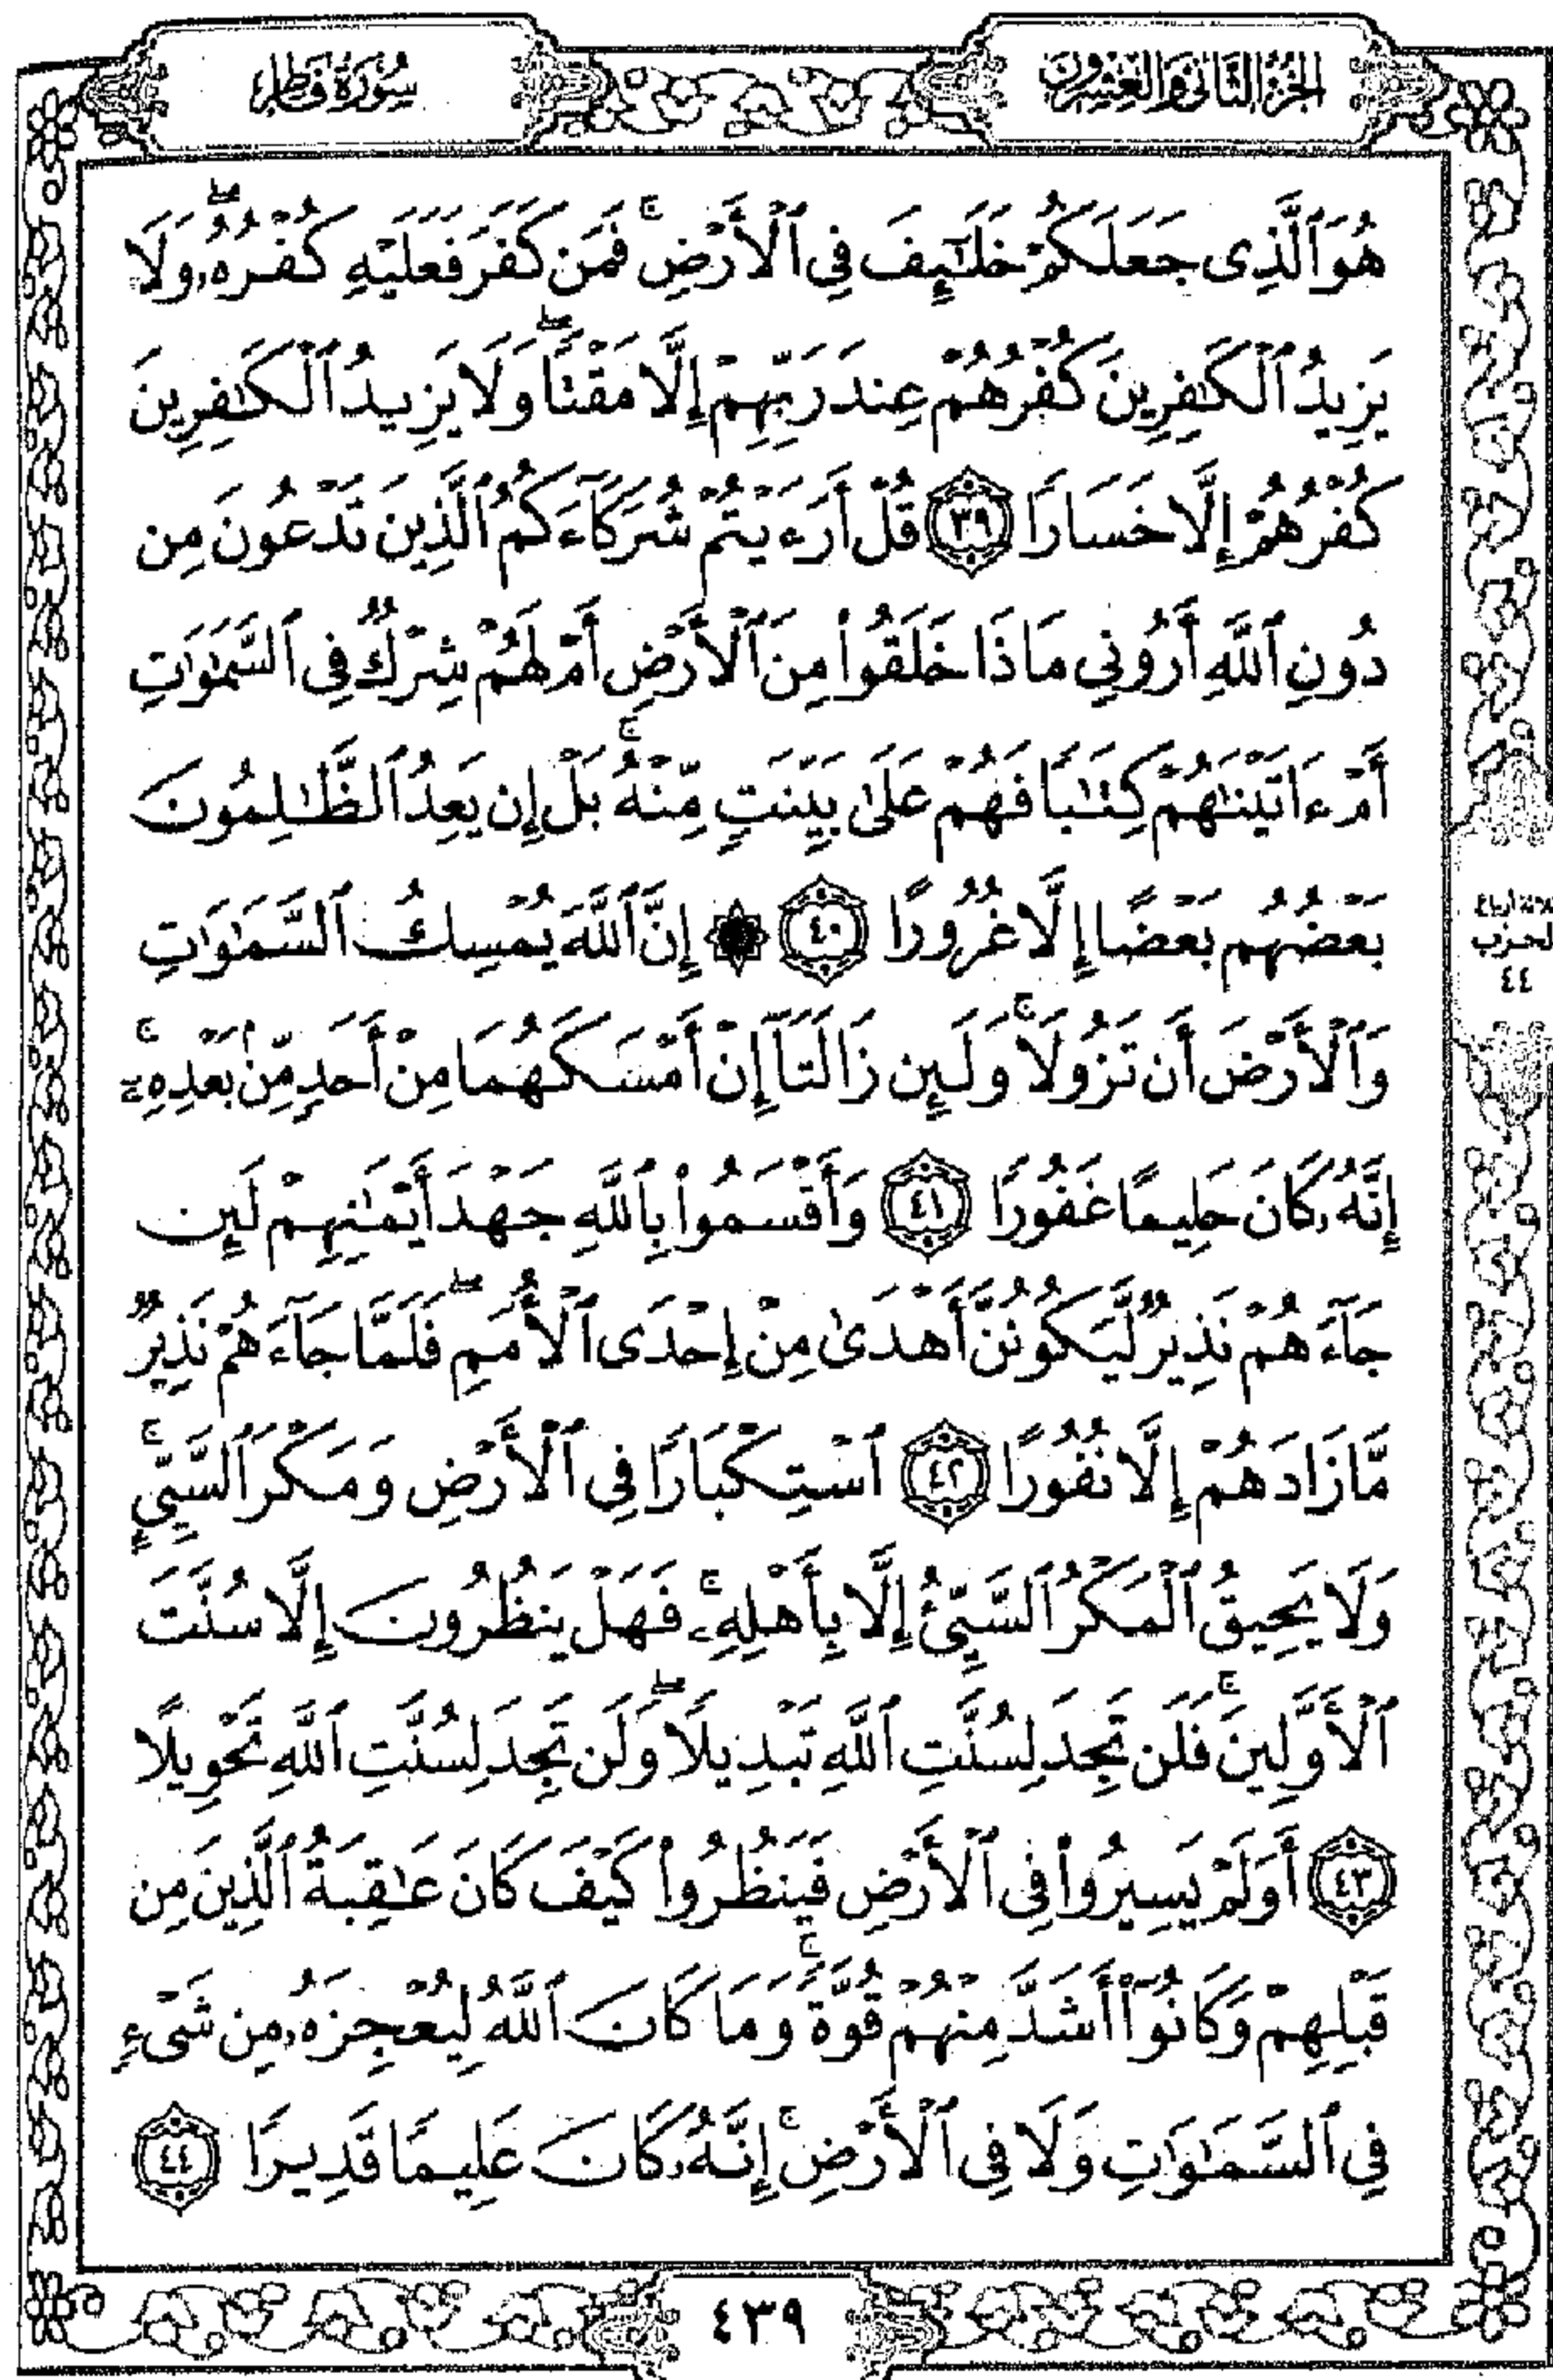 الجزء الثاني والعشرون
سورة فاطر
هُوَ ٱلَّذِى جَعَلَكُمْ خَلَٰٓئِفَ فِى ٱلْأَرْضِ ۚ فَمَن كَفَرَ فَعَلَيْهِ كُفْرُهُۥ ۖ وَلَا
يَزِيدُ ٱلْكَٰفِرِينَ كُفْرُهُمْ عِندَ رَبِّهِمْ إِلَّا مَقْتًا ۖ وَلَا يَزِيدُ ٱلْكَٰفِرِينَ
كُفْرُهُمْ إِلَّا خَسَارًا ٣٩ قُلْ أَرَءَيْتُمْ شُرَكَآءَكُمُ ٱلَّذِينَ تَدْعُونَ مِن
دُونِ ٱللَّهِ أَرُونِى مَاذَا خَلَقُوا۟ مِنَ ٱلْأَرْضِ أَمْ لَهُمْ شِرْكٌ فِى ٱلسَّمَٰوَٰتِ
أَمْ ءَاتَيْنَٰهُمْ كِتَٰبًا فَهُمْ عَلَىٰ بَيِّنَتٍ مِّنْهُ ۚ بَلْ إِن يَعِدُ ٱلظَّٰلِمُونَ
بَعْضُهُم بَعْضًا إِلَّا غُرُورًا ٤٠ ۞ إِنَّ ٱللَّهَ يُمْسِكُ ٱلسَّمَٰوَٰتِ
وَٱلْأَرْضَ أَن تَزُولَا ۚ وَلَئِن زَالَتَآ إِنْ أَمْسَكَهُمَا مِنْ أَحَدٍ مِّنۢ بَعْدِهِۦٓ ۚ
إِنَّهُۥ كَانَ حَلِيمًا غَفُورًا ٤١ وَأَقْسَمُوا۟ بِٱللَّهِ جَهْدَ أَيْمَٰنِهِمْ لَئِن
جَآءَهُمْ نَذِيرٌ لَّيَكُونُنَّ أَهْدَىٰ مِنْ إِحْدَى ٱلْأُمَمِ ۖ فَلَمَّا جَآءَهُمْ نَذِيرٌ
مَّا زَادَهُمْ إِلَّا نُفُورًا ٤٢ ٱسْتِكْبَارًا فِى ٱلْأَرْضِ وَمَكْرَ ٱلسَّيِّئِ ۚ
وَلَا يَحِيقُ ٱلْمَكْرُ ٱلسَّيِّئُ إِلَّا بِأَهْلِهِۦ ۚ فَهَلْ يَنظُرُونَ إِلَّا سُنَّتَ
ٱلْأَوَّلِينَ ۚ فَلَن تَجِدَ لِسُنَّتِ ٱللَّهِ تَبْدِيلًا ۖ وَلَن تَجِدَ لِسُنَّتِ ٱللَّهِ تَحْوِيلًا
٤٣ أَوَلَمْ يَسِيرُوا۟ فِى ٱلْأَرْضِ فَيَنظُرُوا۟ كَيْفَ كَانَ عَٰقِبَةُ ٱلَّذِينَ مِن
قَبْلِهِمْ وَكَانُوٓا۟ أَشَدَّ مِنْهُمْ قُوَّةً ۚ وَمَا كَانَ ٱللَّهُ لِيُعْجِزَهُۥ مِن شَىْءٍ
فِى ٱلسَّمَٰوَٰتِ وَلَا فِى ٱلْأَرْضِ ۚ إِنَّهُۥ كَانَ عَلِيمًا قَدِيرًا ٤٤
٤٤
٤٣٩